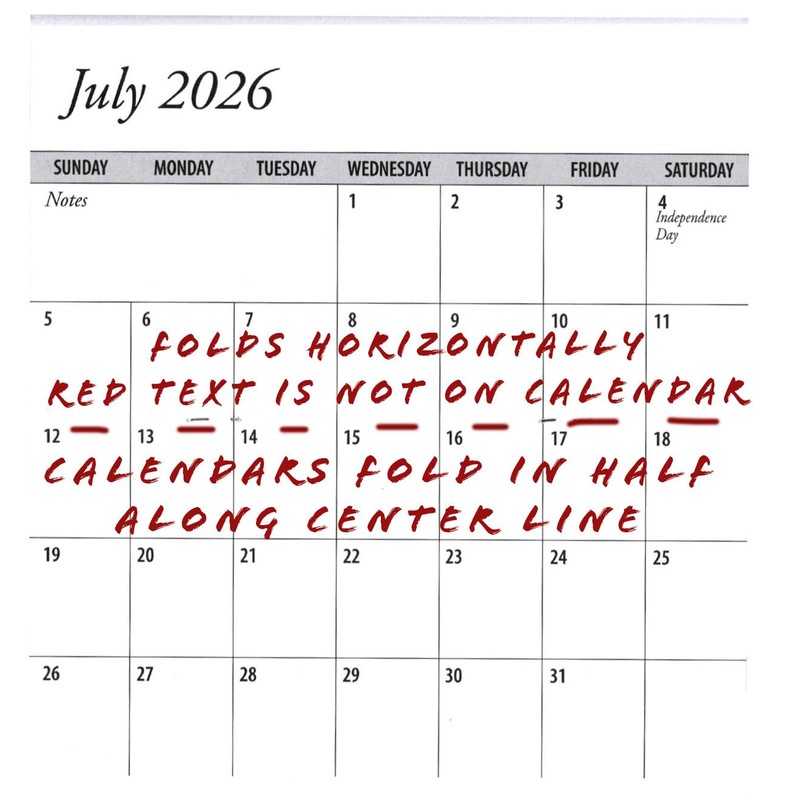 July 2026
SUNDAY MONDAY TUESDAY WEDNESDAY THURSDAY FRIDAY SATURDAY
Notes 1 2 3 4
Independence
Day
5 6 7 8 9 10 11
FOLDS HORIZONTALLY
RED TEXT IS NOT ON CALENDAR
12 13 14 15 16 17 18
CALENDARS FOLD IN HALF
ALONG CENTER LINE
19 20 21 22 23 24 25
26 27 28 29 30 31